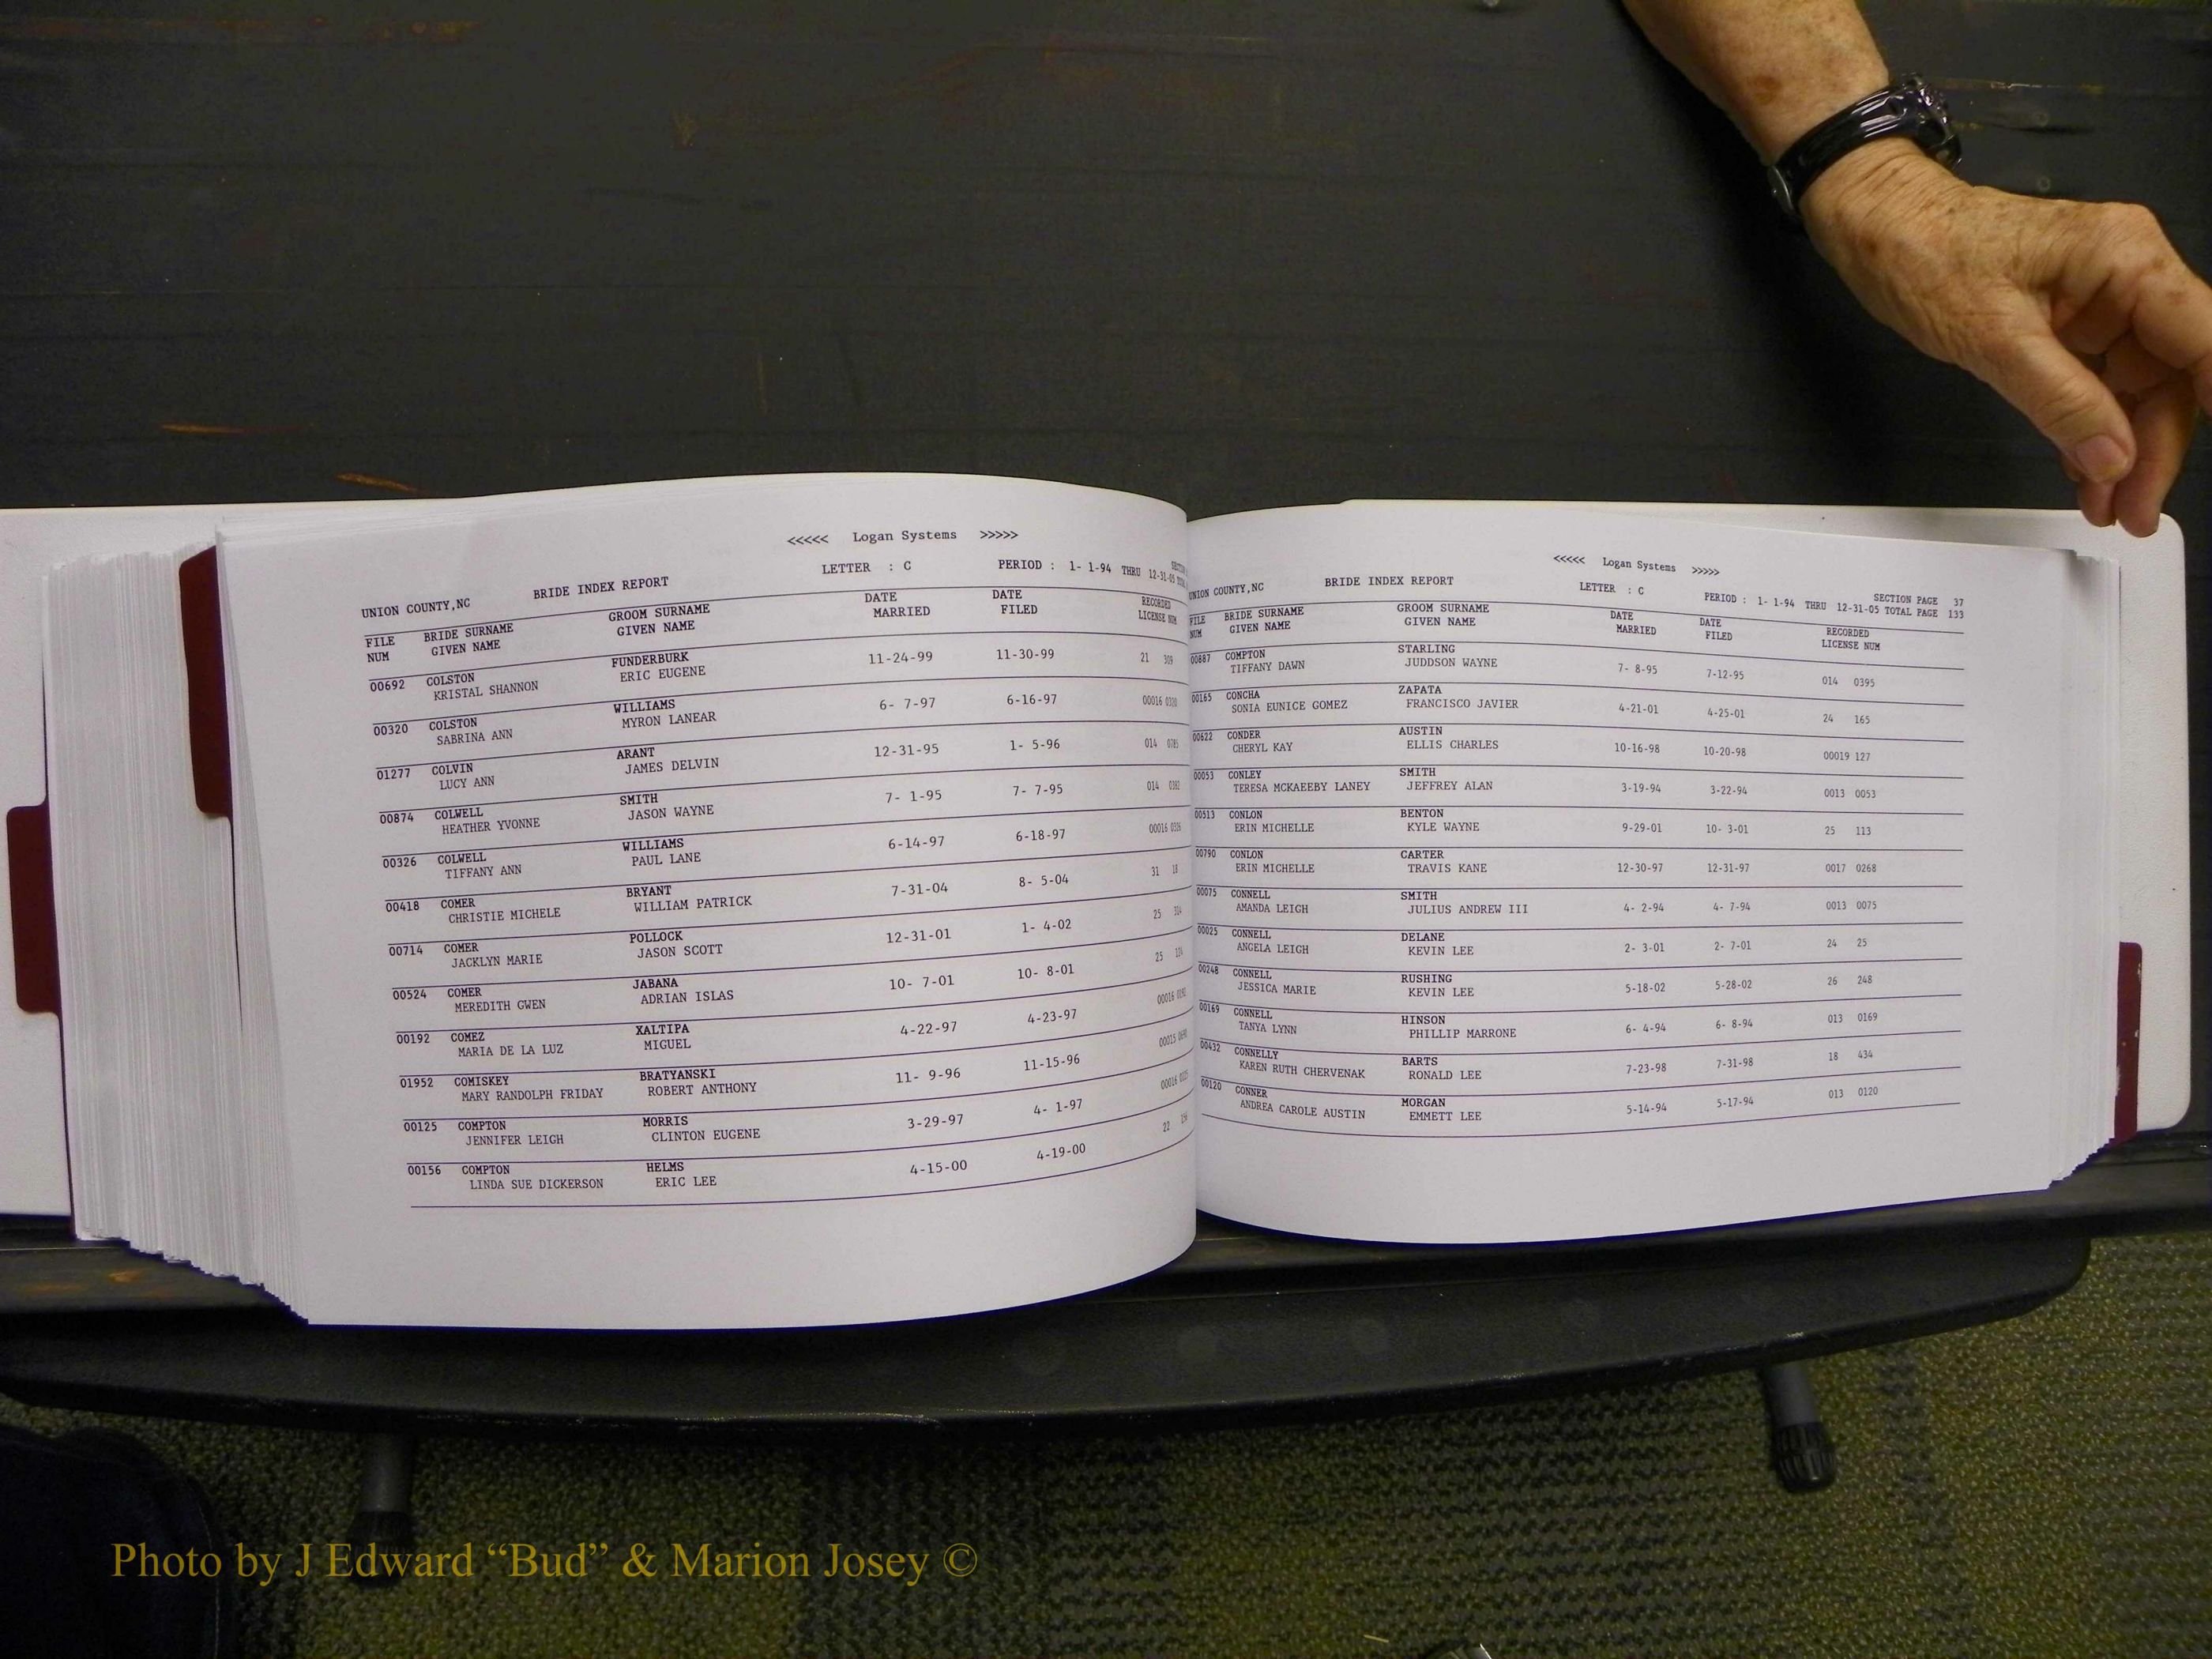 <<<<< Logan Systems >>>>>
UNION COUNTY,NC BRIDE INDEX REPORT LETTER : C PERIOD : 1- 1-94 THRU 12-31-05
FILE BRIDE SURNAME GROOM SURNAME DATE DATE RECORDED
NUM GIVEN NAME GIVEN NAME MARRIED FILED LICENSE NUM
00692 COLSTON FUNDERBURK 11-24-99 11-30-99 21 309
KRISTAL SHANNON ERIC EUGENE
00320 COLSTON WILLIAMS 6- 7-97 6-16-97 00016 0320
SABRINA ANN MYRON LANEAR
01277 COLVIN ARANT 12-31-95 1- 5-96 014
LUCY ANN JAMES DELVIN
00874 COLWELL SMITH 7- 1-95 7- 7-95 014
HEATHER YVONNE JASON WAYNE
00326 COLWELL WILLIAMS 6-14-97 6-18-97 00016 0326
TIFFANY ANN PAUL LANE
00418 COMER BRYANT 7-31-04 8- 5-04 31 18
CHRISTIE MICHELE WILLIAM PATRICK
00714 COMER POLLOCK 12-31-01 1- 4-02 25
JACKLYN MARIE JASON SCOTT
00524 COMER JABANA 10- 7-01 10- 8-01 25
MEREDITH GWEN ADRIAN ISLAS
00192 COMEZ XALTIPA 4-22-97 4-23-97 00016 0192
MARIA DE LA LUZ MIGUEL
01952 COMISKEY BRATYANSKI 11- 9-96 11-15-96 00015
MARY RANDOLPH FRIDAY ROBERT ANTHONY
00125 COMPTON MORRIS 3-29-97 4- 1-97 00016 0125
JENNIFER LEIGH CLINTON EUGENE
00156 COMPTON HELMS 4-15-00 4-19-00 22 156
LINDA SUE DICKERSON ERIC LEE
<<<<< Logan Systems >>>>>
UNION COUNTY,NC BRIDE INDEX REPORT LETTER : C SECTION PAGE 37
PERIOD : 1- 1-94 THRU 12-31-05 TOTAL PAGE 133
FILE BRIDE SURNAME GROOM SURNAME DATE DATE RECORDED
NUM GIVEN NAME GIVEN NAME MARRIED FILED LICENSE NUM
00887 COMPTON STARLING 7- 8-95 7-12-95 014 0395
TIFFANY DAWN JUDDSON WAYNE
00165 CONCHA ZAPATA 4-21-01 4-25-01 24 165
SONIA EUNICE GOMEZ FRANCISCO JAVIER
00622 CONDER AUSTIN 10-16-98 10-20-98 00019 127
CHERYL KAY ELLIS CHARLES
00053 CONLEY SMITH 3-19-94 3-22-94 0013 0053
TERESA MCKAEEBY LANEY JEFFREY ALAN
00513 CONLON BENTON 9-29-01 10- 3-01 25 113
ERIN MICHELLE KYLE WAYNE
00790 CONLON CARTER 12-30-97 12-31-97 0017 0268
ERIN MICHELLE TRAVIS KANE
00075 CONNELL SMITH 4- 2-94 4- 7-94 0013 0075
AMANDA LEIGH JULIUS ANDREW III
00025 CONNELL DELANE 2- 3-01 2- 7-01 24 25
ANGELA LEIGH KEVIN LEE
00248 CONNELL RUSHING 5-18-02 5-28-02 26 248
JESSICA MARIE KEVIN LEE
00169 CONNELL HINSON 6- 4-94 6- 8-94 013 0169
TANYA LYNN PHILLIP MARRONE
00432 CONNELLY BARTS 7-23-98 7-31-98 18 434
KAREN RUTH CHERVENAK RONALD LEE
00120 CONNER MORGAN 5-14-94 5-17-94 013 0120
ANDREA CAROLE AUSTIN EMMETT LEE
Photo by J Edward “Bud” & Marion Josey ©